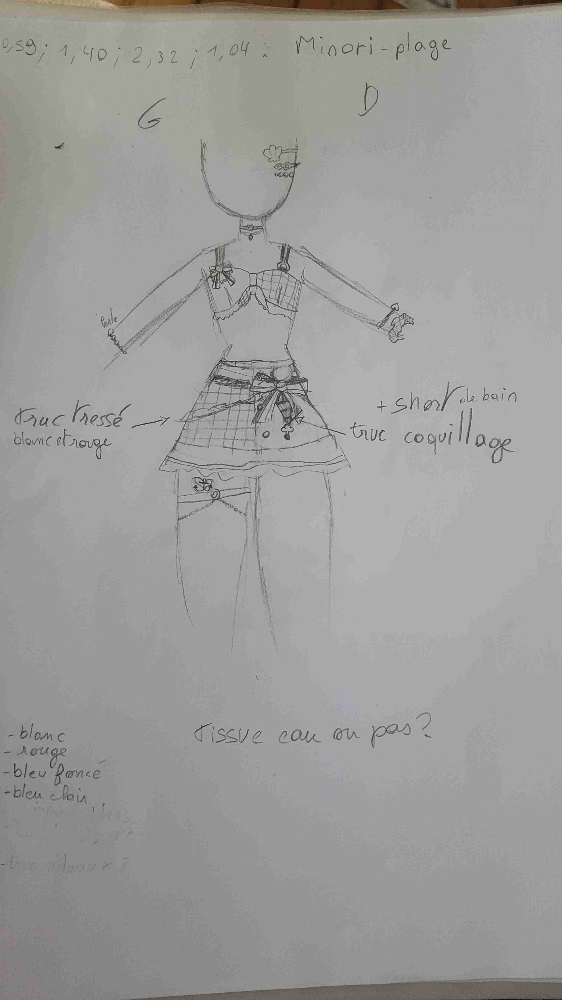 0,59; 1,40; 2,32; 1,04: Minori-plage
G
D
Perle
truc tressé
blanc et rouge
+ short de bain
truc coquillage
tissue eau ou pas?
- blanc
- rouge
- bleu foncé
- bleu clair